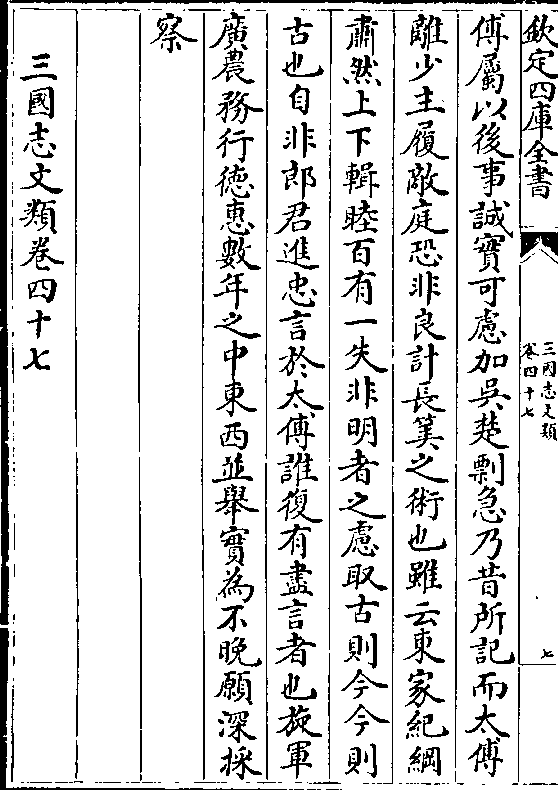 欽定四庫全書
三國志文類
卷四十七
七
傅屬以後事誠實可慮加吳楚剽急乃昔所記而太傅
離少主履敵庭恐非良計長筭之術也雖云東家紀綱
肅然上下輯睦百有一失非明者之慮取古則今今則
古也自非郎君進忠言於太傅誰復有盡言者也旋軍
廣農務行德惠數年之中東西並舉實為不晚願深採
察
三國志文類卷四十七